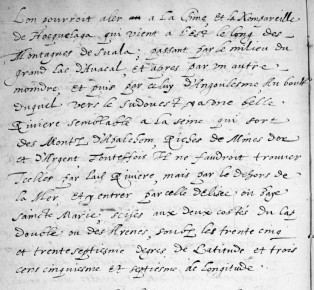 Lon pourroit aler a la Cime et la Ronsareille
de Hocquelaga qui vient a l'est le long des
Montagnes de Suala, passant par le milieu du
grand lac d'Auacal, et apres par un autre
moindre, et puis par celuy d'Angoulesme Au bout
duquel vers le Sudouest ya une belle
Riviere semblable a la seine qui sort
des Montz d'Apalchem Riches de Mines dor
et d'Argent, Toutefois Il ne faudroit trouver
Icelles par lad Riviere, mais par le dehors de
la Mer, et y entrer par celle d'Elisee ou par
saincte Marie, scises aux deux costes du Cap
double ou des Arenes, soubz les trente cinq
et trente septiesme degres de Latitude et trois
cens cinquiesme et septiesme de longitude.